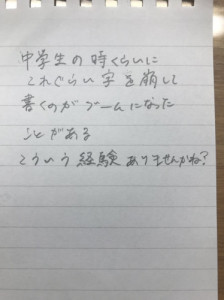 中学生の時くらいに
これぐらい字を崩して
書くのがブームになった
ことがある
こういう経験ありませんかね?